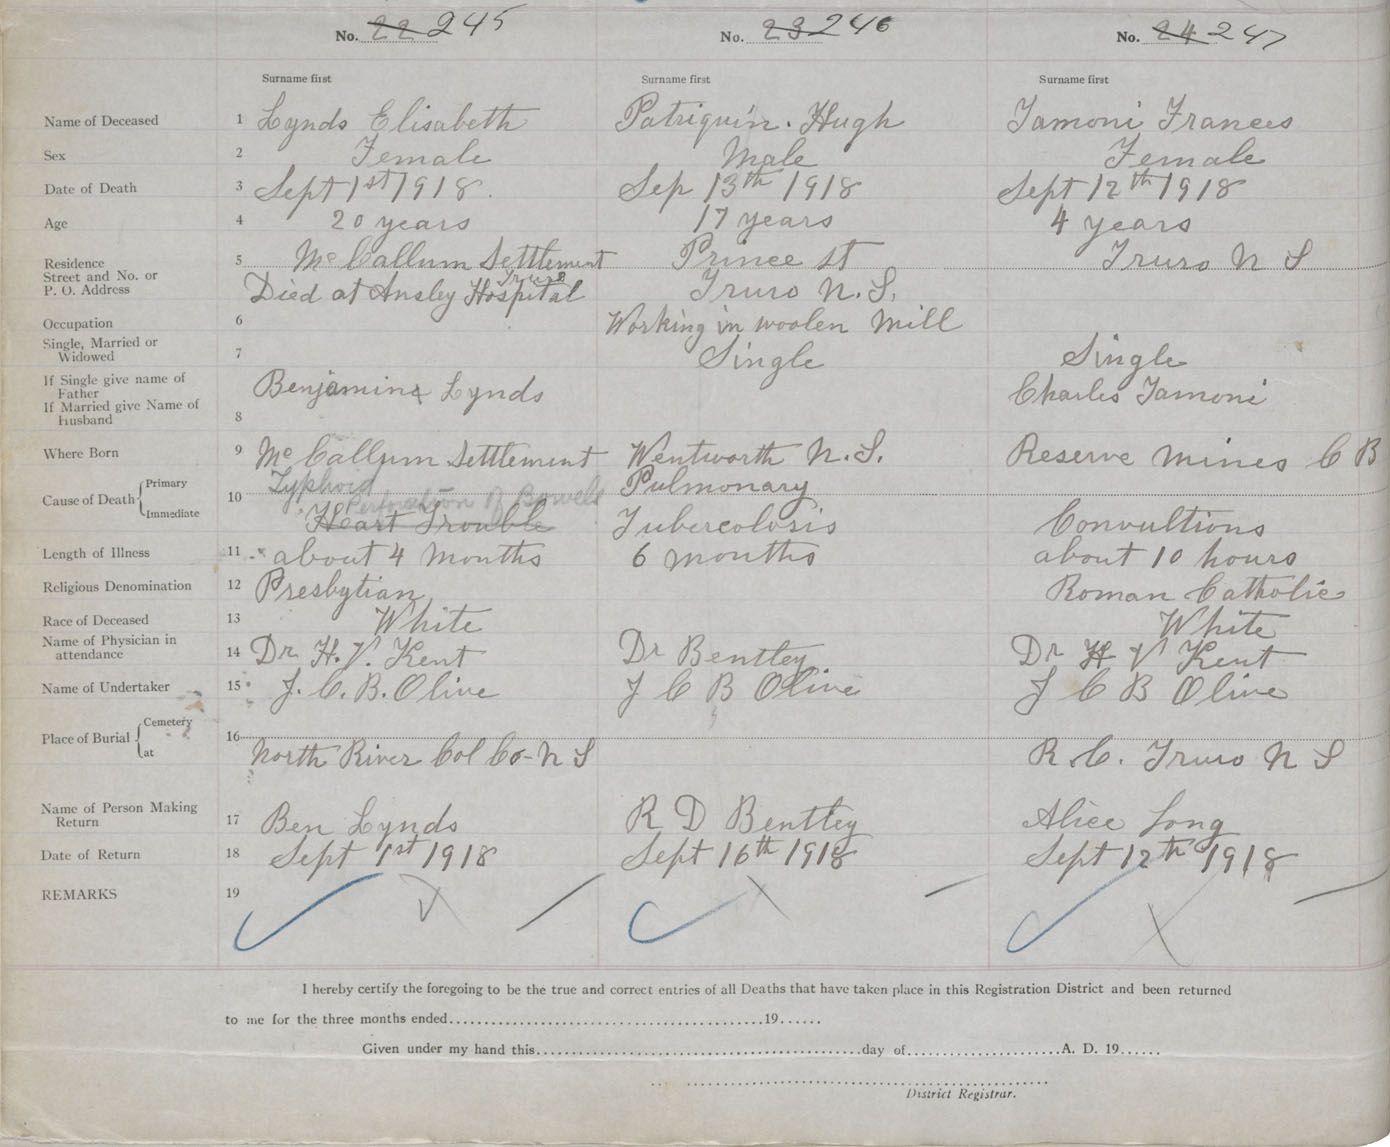 No. 22 245 No. 23 246 No. 24 247
Surname first Surname first Surname first
Name of Deceased 1 Lynds Elisabeth Patriquin. Hugh Tamoni Frances
Sex 2 Female Male Female
Date of Death 3 Sept 1st 1918. Sep 13th 1918 Sept 12th 1918
Age 4 20 years 17 years 4 years
Residence 5 McCallum Settlement Prince St Truro N S
Street and No. or
P. O. Address Died at Ansley Hospital Truro Truro N.S.
Occupation 6 Working in woolen mill
Single, Married or
Widowed 7 Single Single
If Single give name of
Father Benjamine Lynds Charles Tamoni
If Married give Name of
Husband 8
Where Born 9 McCallum Settlement Wentworth N.S. Reserve Mines C B
Cause of Death Primary 10 Typhoid Pulmonary
Perforation of Bowels
Immediate Heart Trouble Tubercolosis Convultions
Length of Illness 11 about 4 months 6 months about 10 hours
Religious Denomination 12 Presbytian Roman Catholic
Race of Deceased 13 White White
Name of Physician in
attendance 14 Dr H. V. Kent Dr Bentley Dr H V Kent
Name of Undertaker 15 J. C. B. Olive J C B Olive J C B Olive
Place of Burial Cemetery 16
at North River Col Co- N S R.C. Truro N S
Name of Person Making
Return 17 Ben Lynds R D Bentley Alice Long
Date of Return 18 Sept 1st 1918 Sept 16th 1918 Sept 12th 1918
REMARKS 19
I hereby certify the foregoing to be the true and correct entries of all Deaths that have taken place in this Registration District and been returned
to me for the three months ended..........19......
Given under my hand this..........day of..........A. D. 19......
District Registrar.